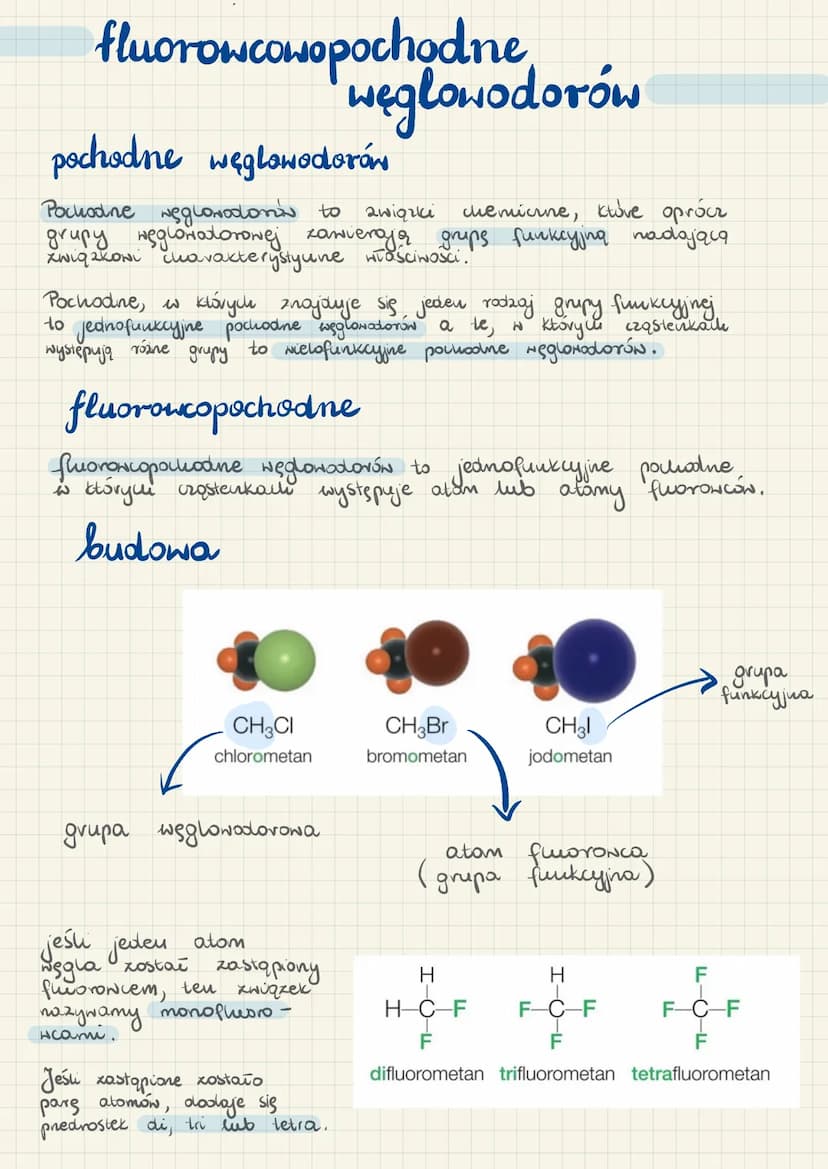 fluorowcowopochodne
węglowodorów
pochodne węglowodorów
Pochodne węglowodorów to związki chemiczne, które oprócz
grupy węglowodorowej zawierają grupę funkcyjną nadającą
związkowi charakterystyczne właściwości.
Pochodne, w których znajduje się jeden rodzaj grupy funkcyjnej
to jednofunkcyjne pochodne węglowodorów a te, w których cząsteczkach
występują różne grupy to wielofunkcyjne pochodne węglowodorów.
fluorowcopochodne
fluorowcopochodne węglowodorów to jednofunkcyjne pochodne
w których cząsteczkach występuje atom lub atomy fluorowców.
budowa
CH₃Cl CH₃Br CH₃I
chlorometan bromometan jodometan
grupa
funkcyjna
grupa węglowodorowa
atom fluorowca
(grupa funkcyjna)
jeśli jeden atom
węgla został zastąpiony
fluorowcem, ten związek
nazywamy monofluoro-
wcami.
Jeśli zastąpione zostało
parę atomów, dodaje się
przedrostek di, tri lub tetra.
H H F
H-C-F F-C-F F-C-F
F F F
difluorometan trifluorometan tetrafluorometan